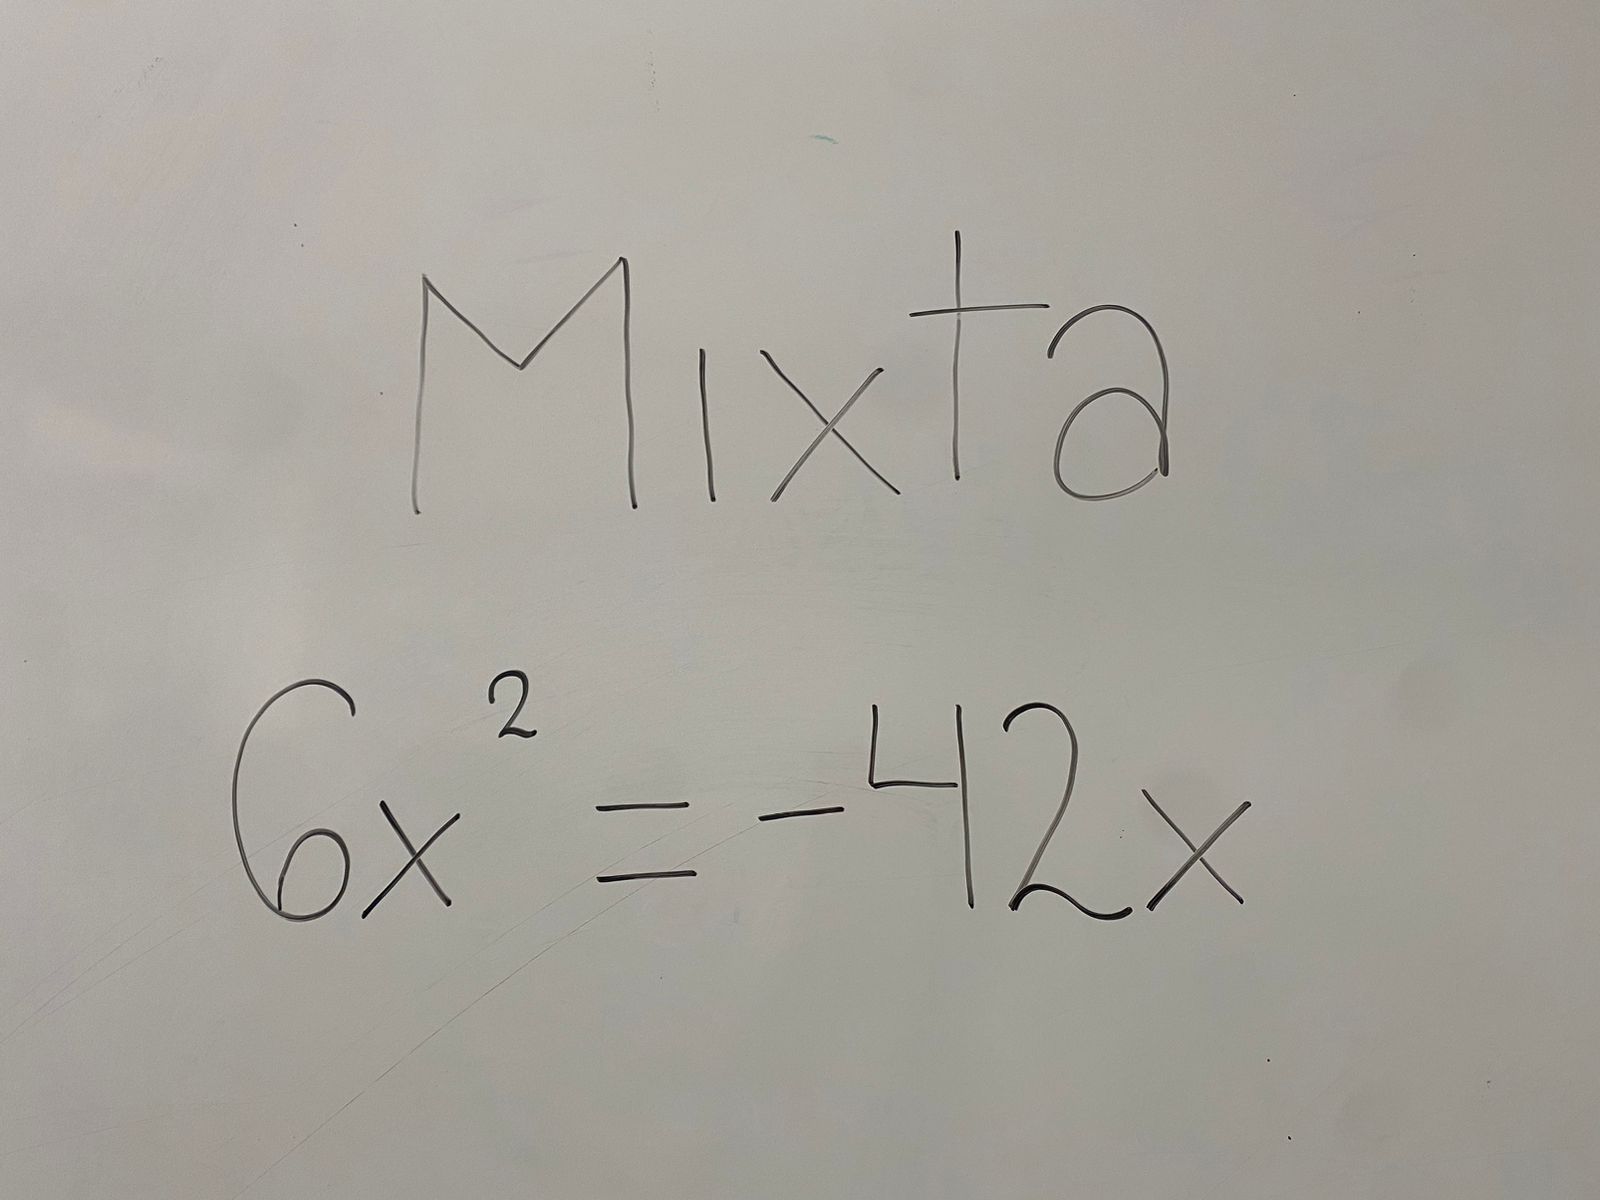 Mixta
6x² = -42x